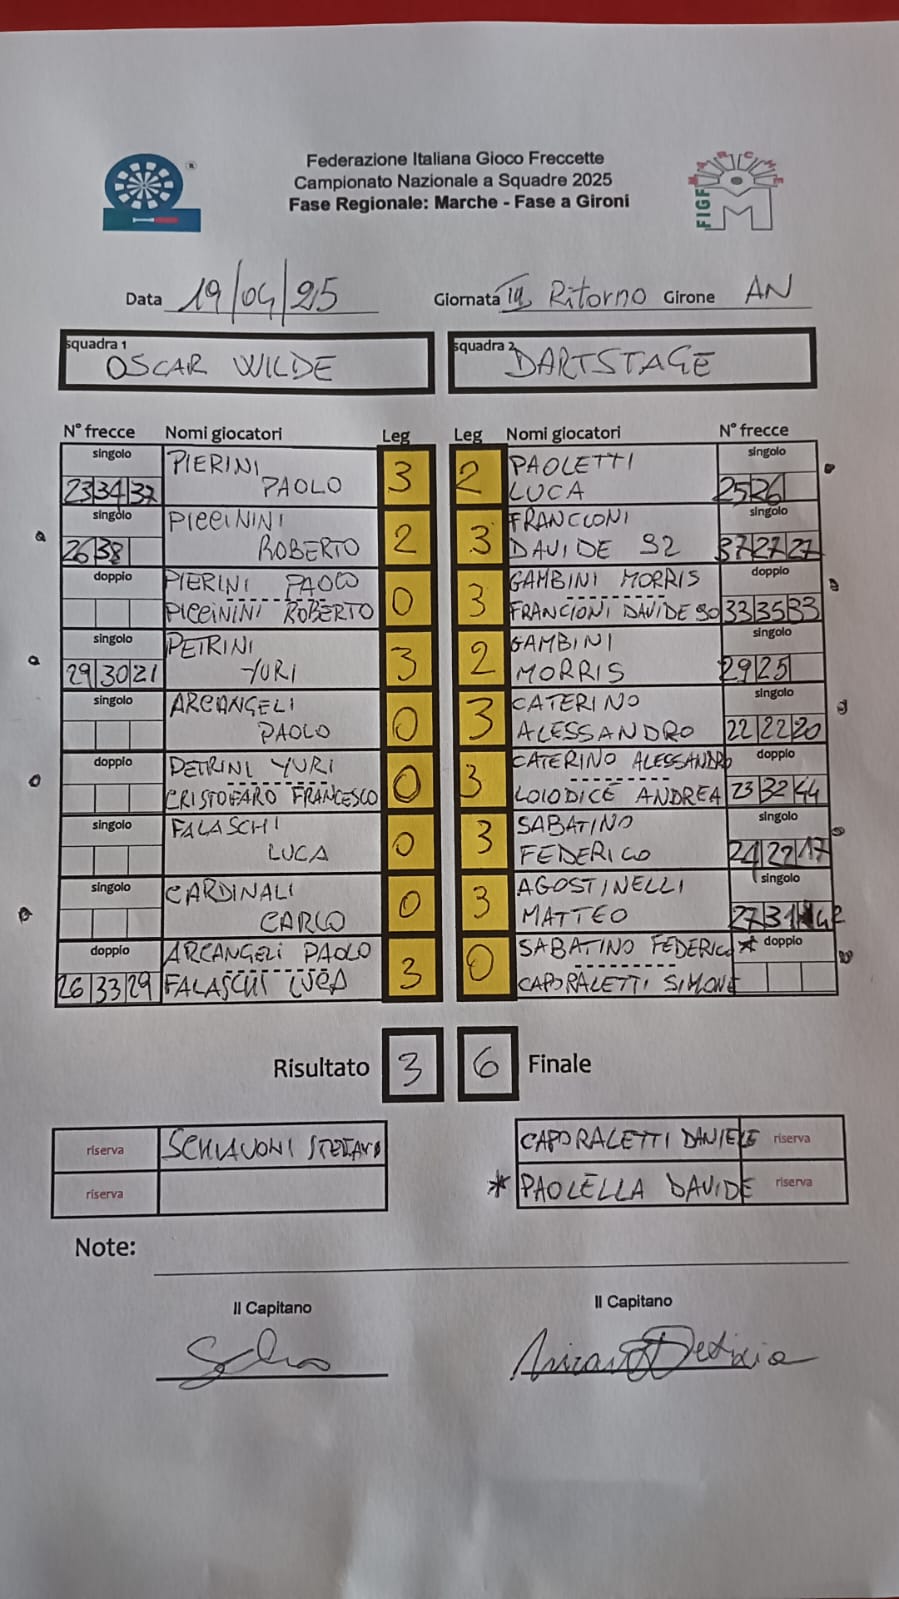 Federazione Italiana Gioco Freccette
Campionato Nazionale a Squadre 2025
Fase Regionale: Marche - Fase a Gironi
MARCHE
FIGF
M
Data 19/04/25 Giornata Ritorno Girone AN
squadra 1 OSCAR WILDE squadra 2 DARTSTAGE
N° frecce Nomi giocatori Leg Leg Nomi giocatori N° frecce
singolo PIERINI PAOLETTI singolo
23|34|37 PAOLO 3 2 LUCA 25|26
singolo PICCININI FRANCIONI singolo
26|38 ROBERTO 2 3 DAVIDE 92 37|27|27
doppio PIERINI PAOLO GAMBINI MORRIS doppio
PICCININI ROBERTO 0 3 FRANCIONI DAVIDE 90 33|35|33
singolo PETRINI GAMBINI singolo
29|30|21 YURI 3 2 MORRIS 29|25
singolo ARCANGELI CATERINO singolo
PAOLO 0 3 ALESSANDRO 22|22|20
doppio PETRINI YURI CATERINO ALESSANDRO doppio
CRISTOFARO FRANCESCO 0 3 LOIODICE ANDREA 23|32|44
singolo FALASCHI SABATINO singolo
LUCA 0 3 FEDERICO 24|22|17
singolo CARDINALI AGOSTINELLI singolo
CARLO 0 3 MATTEO 27|31|42
doppio ARCANGELI PAOLO SABATINO FEDERICO * doppio
26|33|29 FALASCHI LUCA 3 0 CAPORALETTI SIMONE
Risultato 3 6 Finale
riserva SCHIAVONI STEFANO CAPORALETTI DANIELE riserva
riserva * PAOLELLA DAVIDE riserva
Note:
Il Capitano Il Capitano